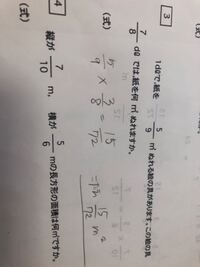 (式)
3
1dLで、紙を 5/9 ㎡ぬれる絵の具があります。この絵の具
7/8 dLでは、紙を何㎡ぬれますか。
(式)
5/9 × 3/8 = 15/72
15/72 m²
4
縦が 7/10 m、横が 5/6 mの長方形の面積は何㎡ですか。
(式)